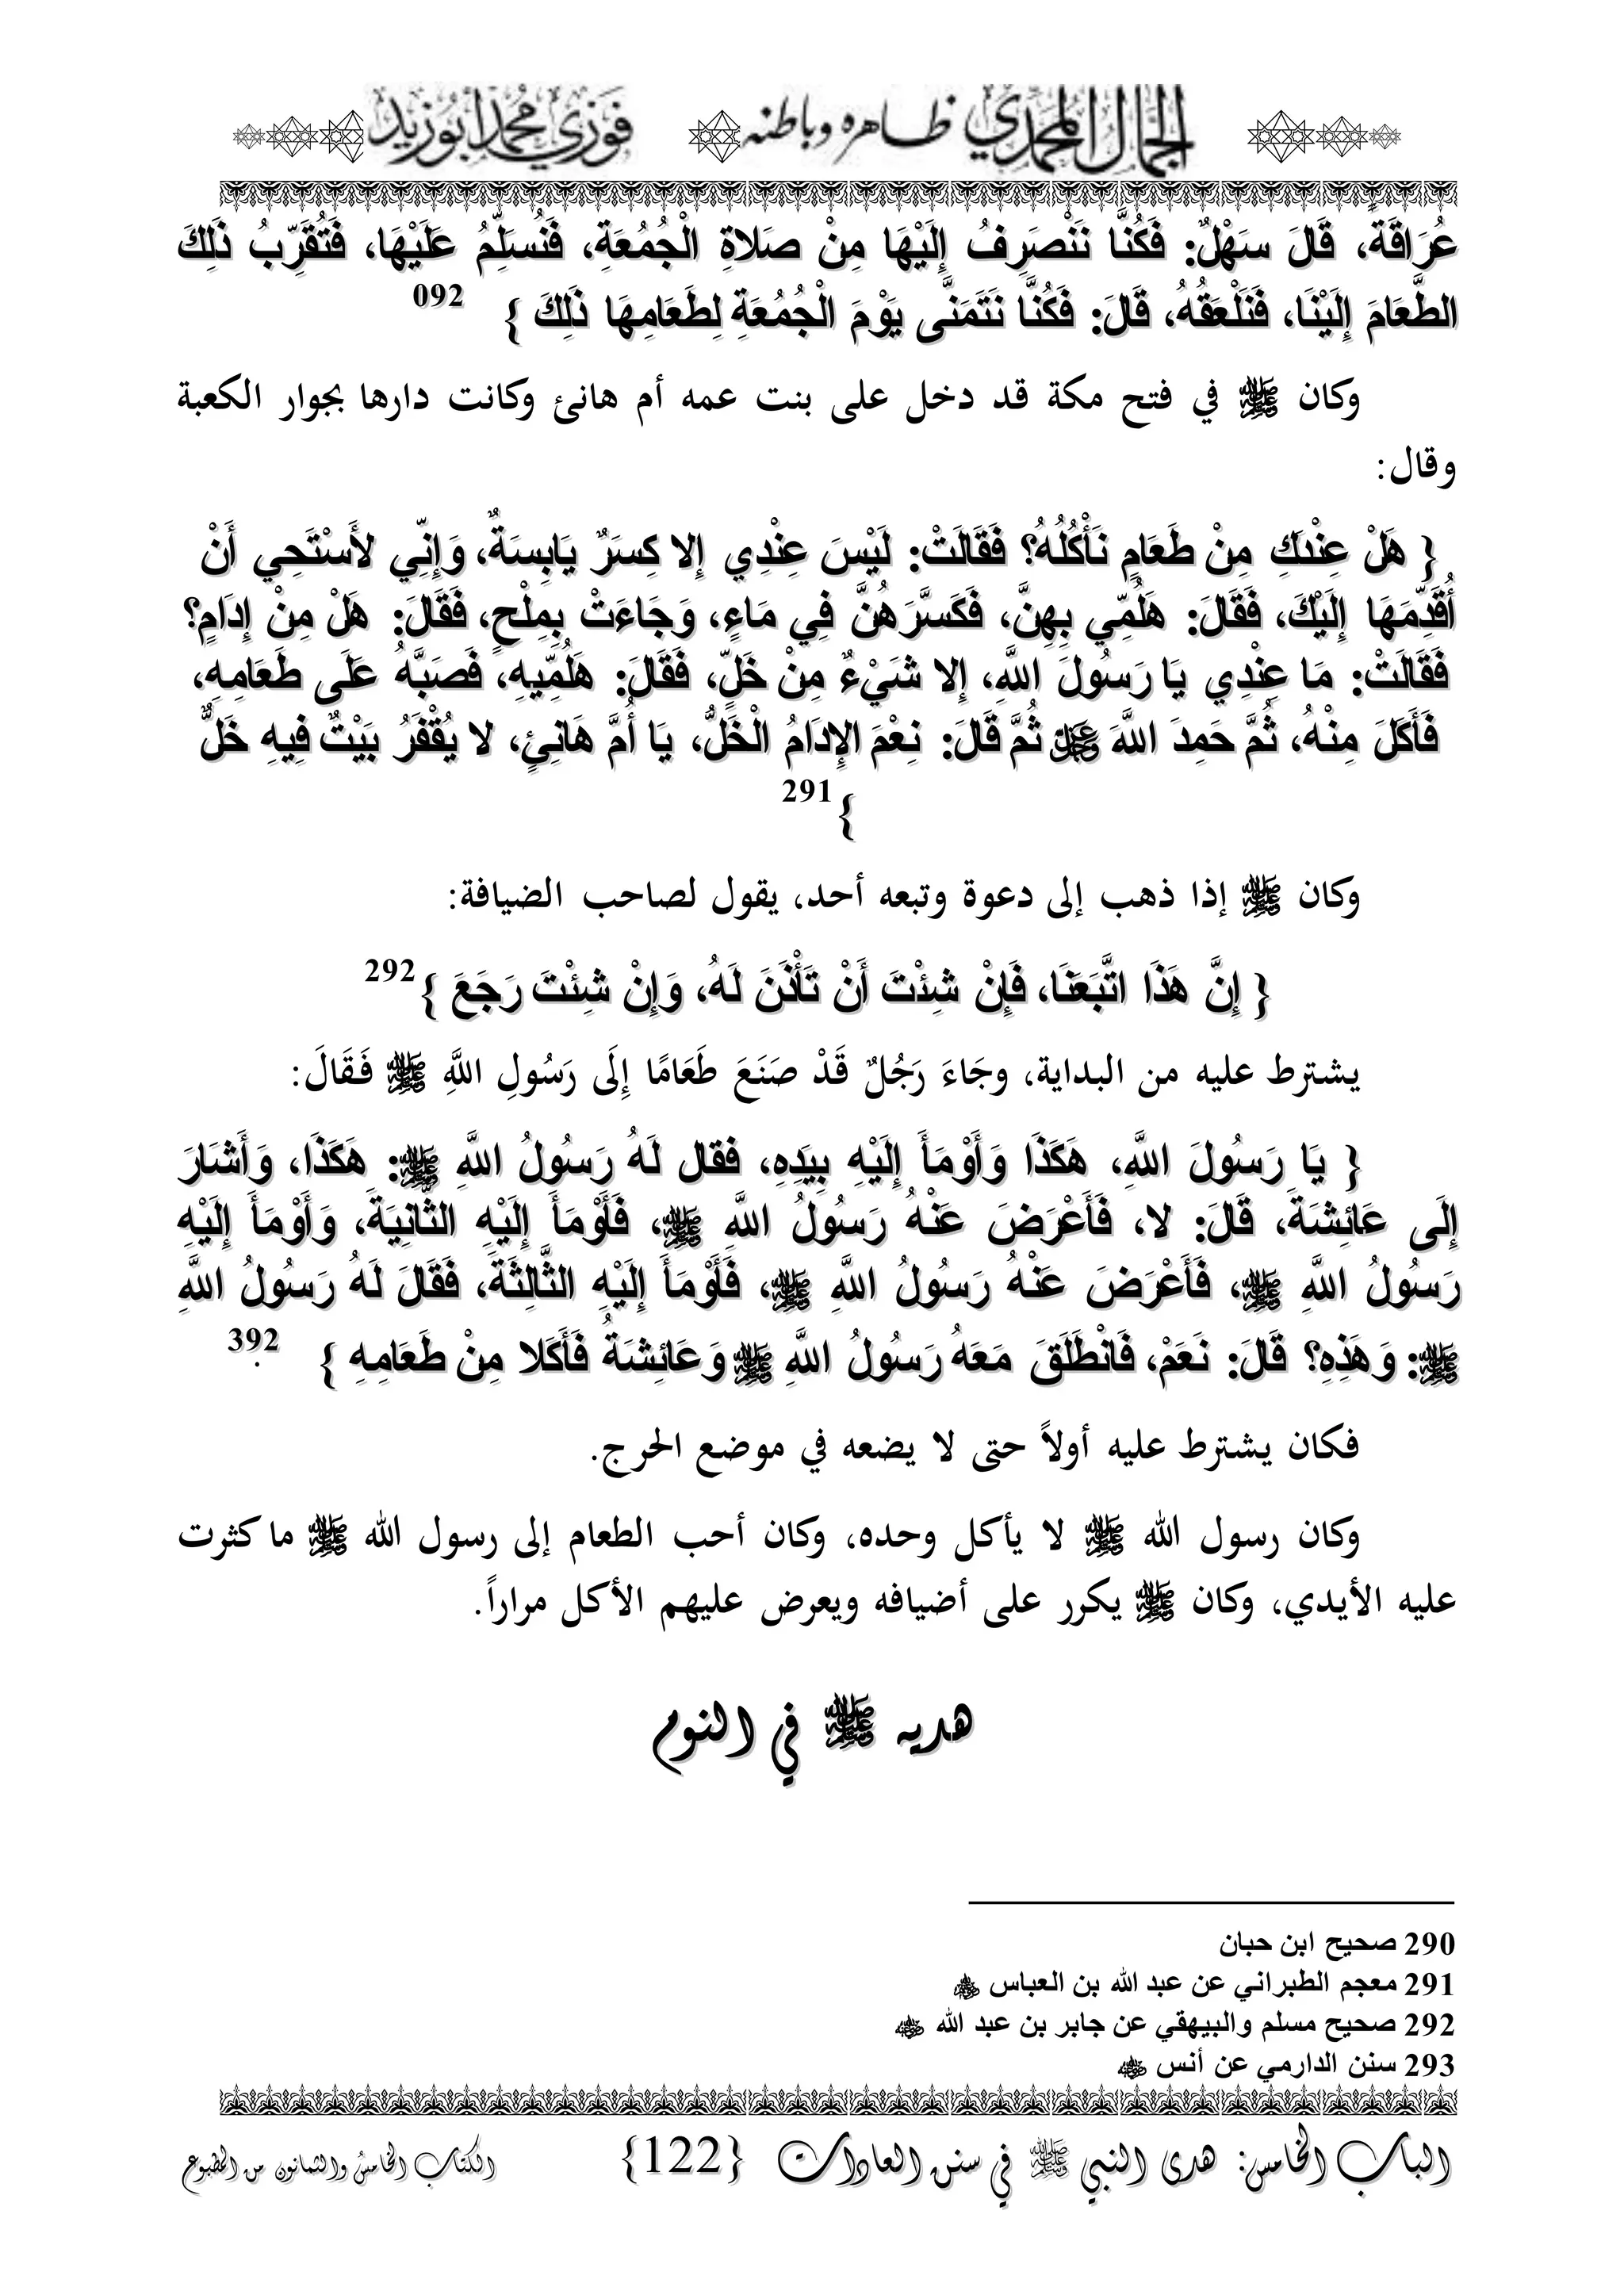 الجمال المحمدي ظاهره وباطنه فوزي محمد أبوزيد
عُرَاقَةً، قَالَ سَهْلٌ: فَكُنَّا نَنْصَرِفُ إِلَيْهَا مِنْ صَلاةِ الْجُمُعَةِ، فَنُسَلِّمُ عَلَيْهَا، فَتُقَرِّبُ ذَلِكَ
الطَّعَامَ إِلَيْنَا، فَنَلْعَقُهُ، قَالَ: فَكُنَّا نَتَمَنَّى يَوْمَ الْجُمُعَةِ لِطَعَامِهَا ذَلِكَ } 092
وكان ﷺ في فتح مكة قد دخل على بنت عمه أم هانئ وكانت دارها بجوار الكعبة
وقال:
{ هَلْ عِنْدَكِ مِنْ طَعَامٍ نَأْكُلُهُ؟ فَقَالَتْ: لَيْسَ عِنْدِي إِلا كِسَرٌ يَابِسَةٌ، وَإِنِّي لأَسْتَحِي أَنْ
أُقَدِّمَهَا إِلَيْكَ، فَقَالَ: هَلُمِّي بِهِنَّ، فَكَسَّرَهُنَّ فِي مَاءٍ، وَجَاءَتْ بِمِلْحٍ، فَقَالَ: هَلْ مِنْ إِدَامٍ؟
فَقَالَتْ: مَا عِنْدِي يَا رَسُولَ اللَّهِ، إِلا شَيْءٌ مِنْ خَلٍّ، فَقَالَ: هَلُمِّيهِ، فَصَبَّهُ عَلَى طَعَامِهِ،
فَأَكَلَ مِنْهُ، ثُمَّ حَمِدَ اللَّهَ ﷻ ثُمَّ قَالَ: نِعْمَ الإِدَامُ الْخَلُّ، يَا أُمَّ هَانِئٍ، لا يُقْفَرُ بَيْتٌ فِيهِ خَلٌّ
} 291
وكان ﷺ إذا ذهب إلى دعوة وتبعه أحد، يقول لصاحب الضيافة:
{ إِنَّ هَذَا اتَّبَعَنَا، فَإِنْ شِئْتَ أَنْ تَأْذَنَ لَهُ، وَإِنْ شِئْتَ رَجَعَ } 292
يشترط عليه من البداية، وجَاءَ رَجُلٌ قَدْ صَنَعَ طَعَامًا إِلَى رَسُولِ اللَّهِ ﷺ فَقَالَ:
{ يَا رَسُولَ اللَّهِ، هَكَذَا وَأَوْمَأَ إِلَيْهِ بِيَدِهِ، فقال لَهُ رَسُولُ اللَّهِ ﷺ: هَكَذَا، وَأَشَارَ
إِلَى عَائِشَةَ، قَالَ: لا، فَأَعْرَضَ عَنْهُ رَسُولُ اللَّهِ ﷺ، فَأَوْمَأَ إِلَيْهِ الثَّانِيَةَ، وَأَوْمَأَ إِلَيْهِ
رَسُولُ اللَّهِ ﷺ، فَأَعْرَضَ عَنْهُ رَسُولُ اللَّهِ ﷺ، فَأَوْمَأَ إِلَيْهِ الثَّالِثَةَ، فَقَالَ لَهُ رَسُولُ اللَّهِ
ﷺ: وَهَذِهِ؟ قَالَ: نَعَمْ، فَانْطَلَقَ مَعَهُ رَسُولُ اللَّهِ ﷺ وَعَائِشَةُ فَأَكَلا مِنْ طَعَامِهِ } 392.
فكان يشترط عليه أولاً حتى لا يضعه في موضع الحرج.
وكان رسول الله ﷺ لا يأكل وحده، وكان أحب الطعام إلى رسول الله ﷺ ما كثرت
عليه الأيدي، وكان ﷺ يكرر على أضيافه ويعرض عليهم الأكل مراراً.
هديه ﷺ في النوم
290 صحيح ابن حبان
291 معجم الطبراني عن عبد الله بن العباس
292 صحيح مسلم والبيهقي عن جابر بن عبد الله
293 سنن الدارمي عن أنس
الباب الخامس: هدى النبي ﷺ في سنن العادات {122} الكتاب الخامس والثمانون من المطبوع